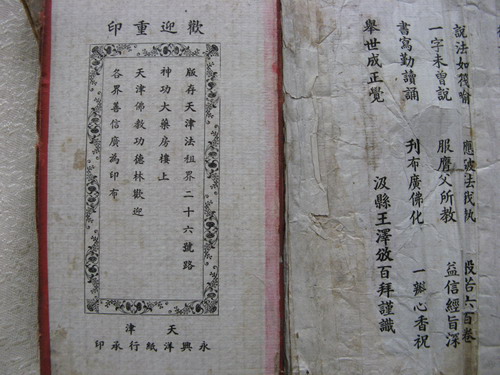 說法如筏喻 應破法我執 般若六百卷
一字未曾說 服膺父所教 益信經旨深
書寫勤讀誦 刊布廣佛化 一瓣心香祝
舉世成正覺
汲縣王澤攽百拜謹識
歡迎重印
版存天津法租界二十六號路
神功大藥房樓上
天津佛教功德林歡迎
各界善信廣為印布
天津
永興洋紙行承印